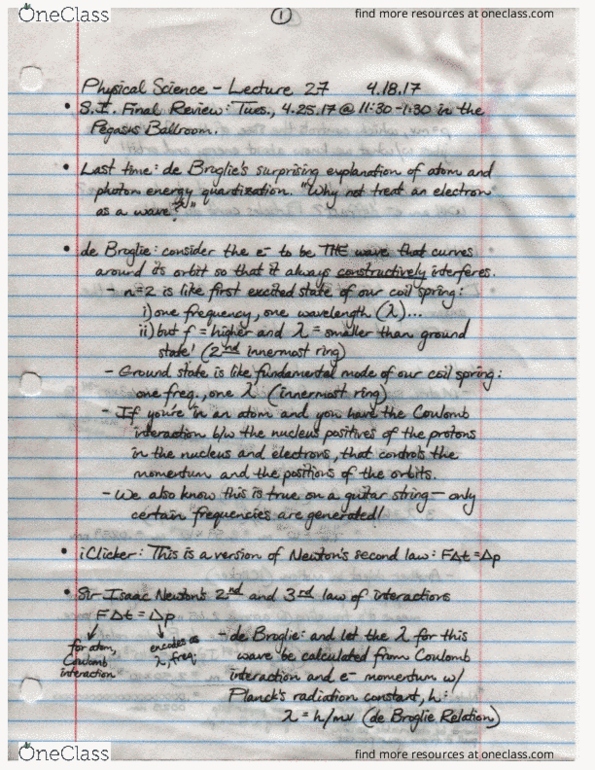 OneClass
find more resources at oneclass.com
1
Physical Science - Lecture 27 4.18.17
• S.I. Final Review: Tues., 4.25.17 @ 11:30-1:30 in the
Pegasus Ballroom.
• Last time: de Broglie's surprising explanation of atom and
photon energy quantization. "Why not treat an electron
as a wave?"
• de Broglie: consider the e- to be THE wave that curves
around its orbit so that it always constructively interferes.
- n=2 is like first excited state of our coil spring:
i) one frequency, one wavelength (λ)...
ii) but f = higher and λ = smaller than ground
state! (2nd innermost ring)
- Ground state is like fundamental mode of our coil spring:
one freq., one λ (innermost ring)
- If you're in an atom and you have the Coulomb
interaction b/w the nucleus positives of the protons
in the nucleus and electrons, that controls the
momentum and the positions of the orbits.
- We also know this is true on a guitar string — only
certain frequencies are generated!
• iClicker: This is a version of Newton's second law: FΔt = Δp
• Sir Isaac Newton's 2nd and 3rd law of interactions
FΔt = Δp
for atom,
Coulomb
interaction
encodes as
λ, freq
- de Broglie: and let the λ for this
wave be calculated from Coulomb
interaction and e- momentum w/
Planck's radiation constant, h:
λ = h/mv (de Broglie Relation)
OneClass
find more resources at oneclass.com